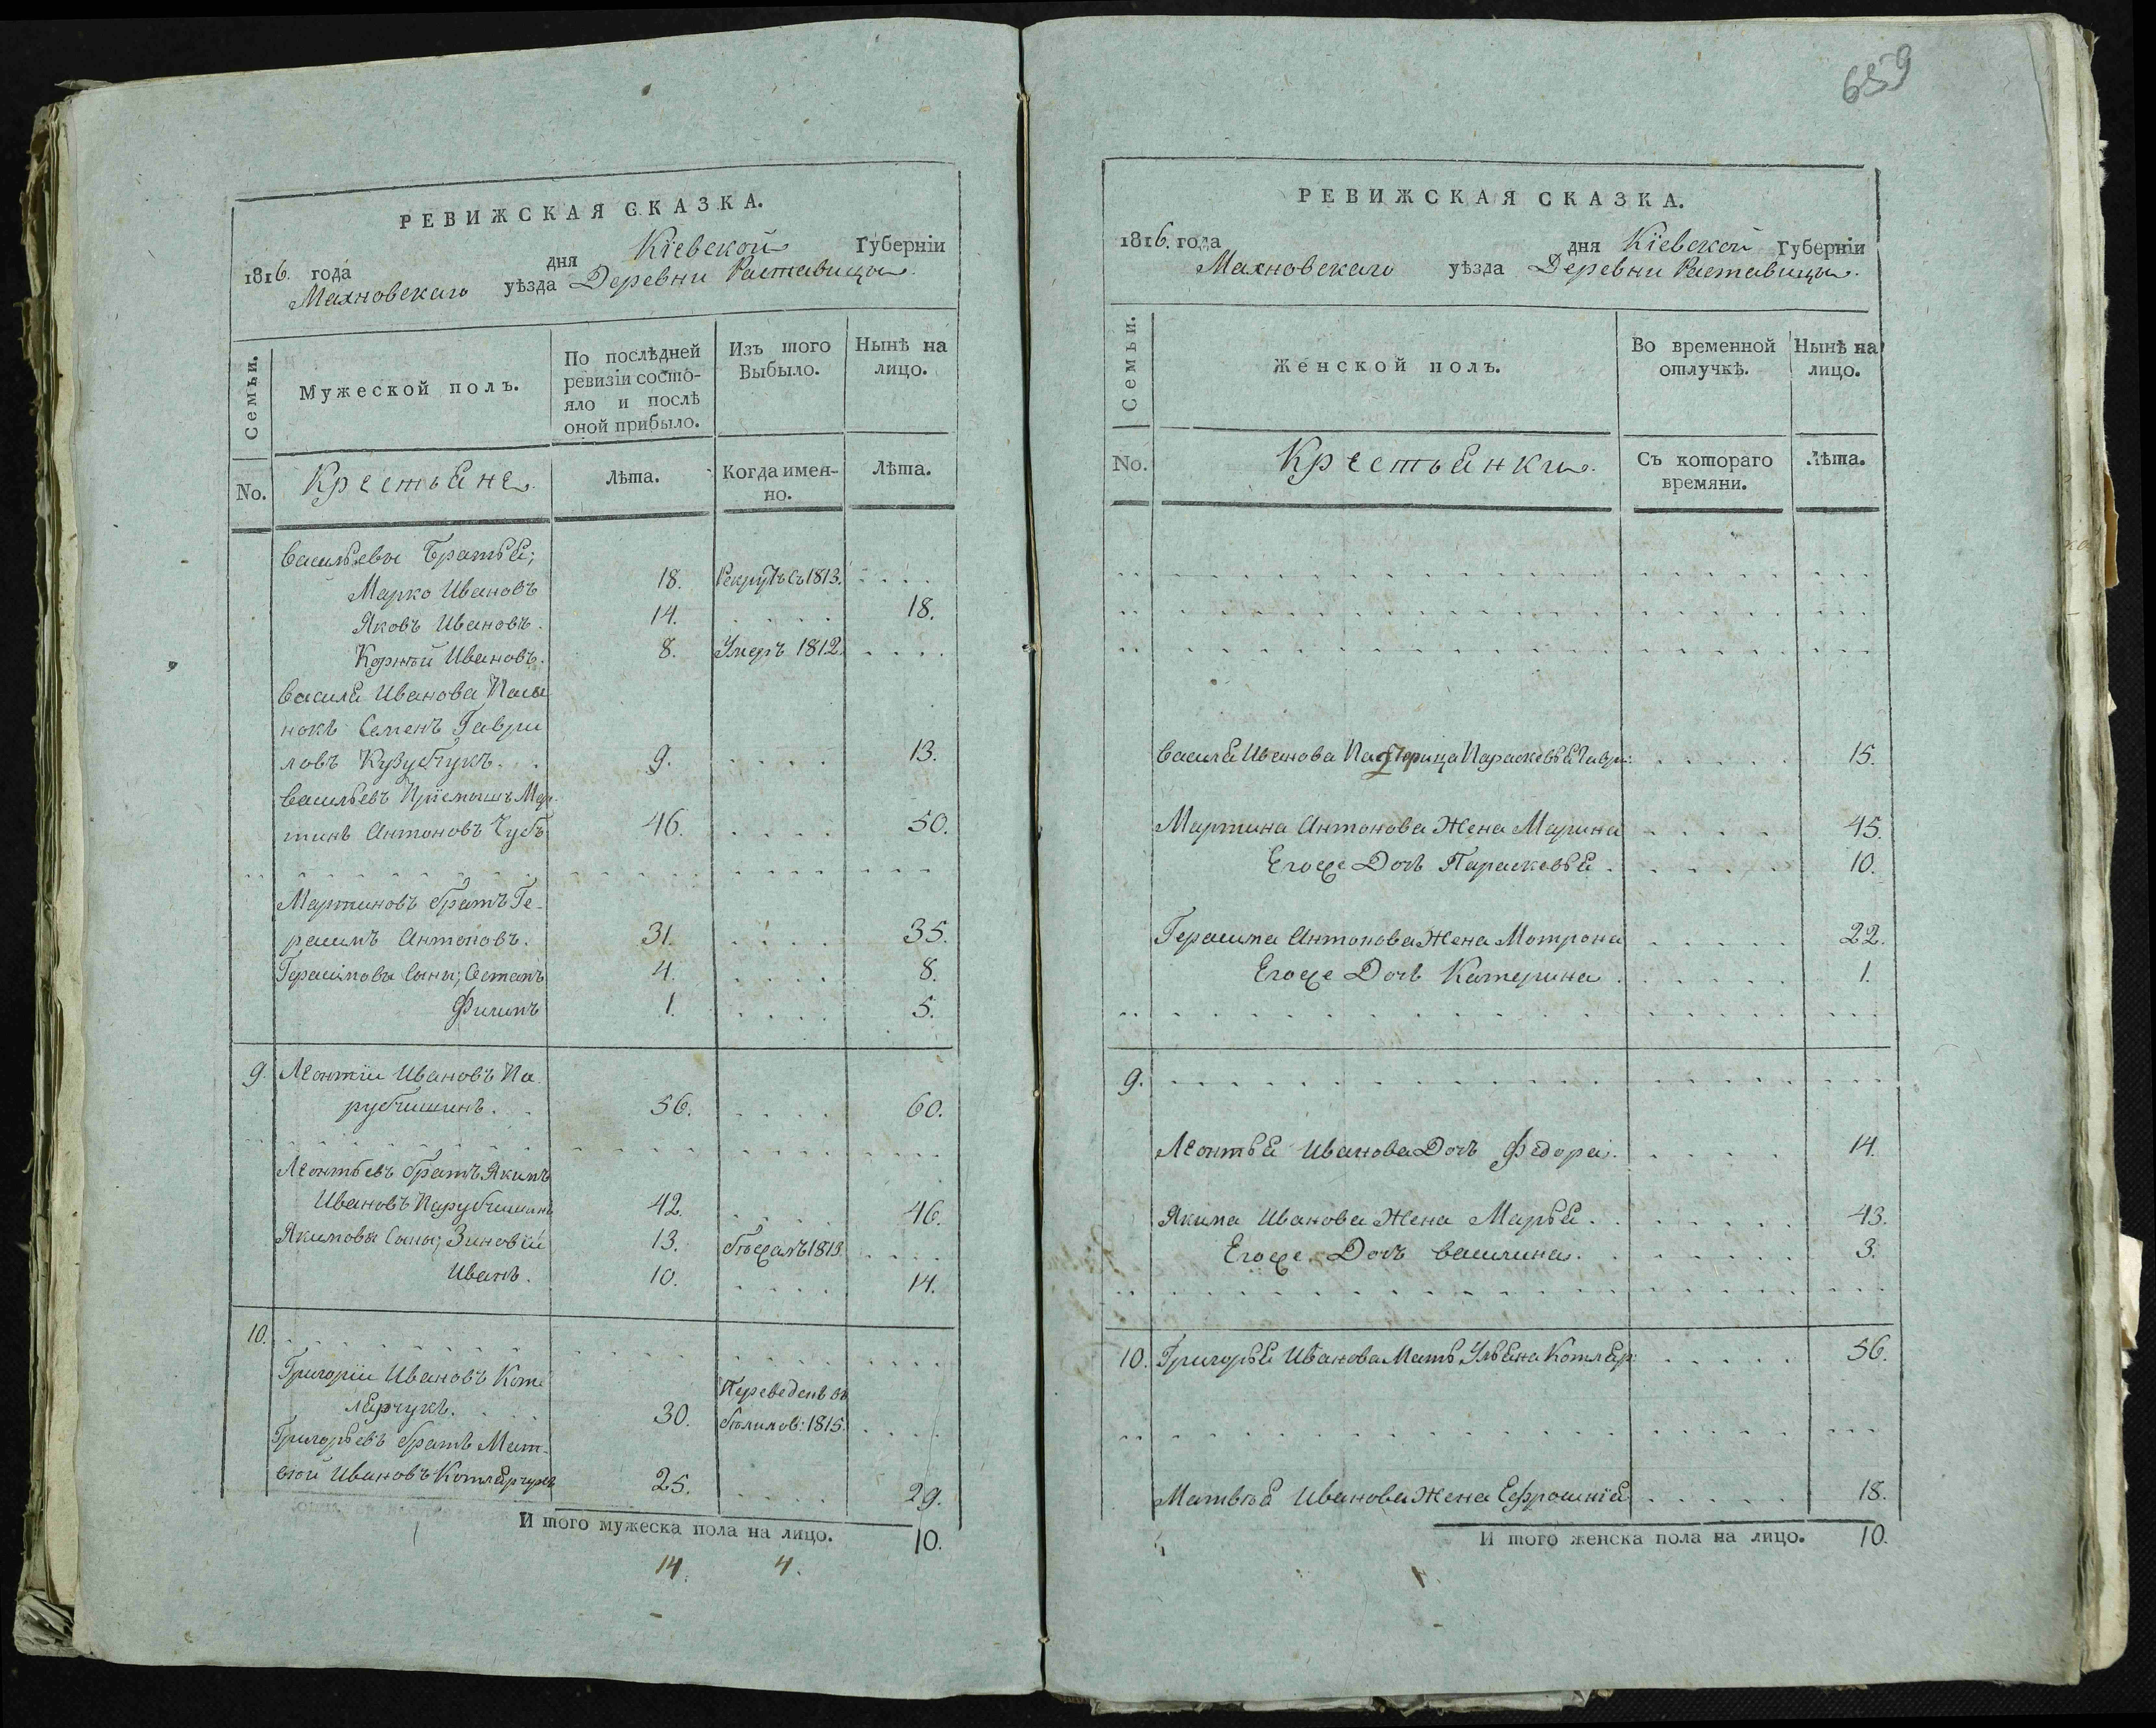 РЕВИЖСКАЯ СКАЗКА.
1816. года дня Кіевской Губерніи
Махновскаго уѣзда Деревни Раставицы.
Семьи.
Мужеской полъ.
По послѣдней
ревизіи состо-
яло и послѣ
оной прибыло.
Изъ того
Выбыло.
Нынѣ на
лицо.
No.
Крестьяне.
Лѣта.
Когда имен-
но.
Лѣта.
Васильевы Братья;
Марко Ивановъ 18. Рекрутъ съ 1813. . . . .
Яковъ Ивановъ. 14. . . . . 18.
Корнѣй Ивановъ. 8. Умеръ 1812. . . . .
Василя Иванова Пасы
нокъ Семенъ Гаври
ловъ Кузубчукъ. . . 9. . . . . 13.
Васильевъ Пріемышъ Мар
тинъ Антоновъ Чубъ 46. . . . . 50.
Мартиновъ братъ Ге-
расимъ Антоновъ. 31. . . . . 35.
Герасимовы Сыны; Остапъ 4. . . . . 8.
Филипъ 1. . . . . 5.
9. Леонтіи Ивановъ Па
рубчишинъ. . . 56. . . . . 60.
Леонтьевъ братъ Якимъ
Ивановъ Парубчишинъ 42. . . . . 46.
Якимовы Сыны; Зиновѣй 13. бѣжалъ 1813. . . . .
Иванъ. 10. . . . . 14.
10.
Григоріи Ивановъ Кот
лярчукъ. 30. Переведенъ въ
бѣлилов: 1815. . . . .
Григорьевъ братъ Мат-
вѣй Ивановъ Котлярчукъ 25. . . . . 29.
И того мужеска пола на лицо. 10.
14. 4.
659
РЕВИЖСКАЯ СКАЗКА.
1816. года дня Кіевской Губерніи
Махновскаго уѣзда Деревни Раставицы.
Семьи.
Женской полъ.
Во временной
отлучкѣ.
Нынѣ на
лицо.
No.
Крестьянки.
Съ котораго
времяни.
Лѣта.
Василя Иванова Падчерица Парасковья Гаври: . . . . . 15.
Мартина Антонова Жена Марина . . . . . 45.
Егоже Дочь Парасковья . . . . . 10.
Герасима Антонова Жена Мотрона . . . . . 22.
Егоже Дочь Катерина . . . . . 1.
9.
Леонтья Иванова Дочь Федора. . . . . 14.
Якима Иванова Жена Марья. . . . . . 43.
Егоже Дочь Василина. . . . . . 3.
10. Григорья Иванова Мать Ульяна Котляр: . . . . . 56.
Матвѣя Иванова Жена Ефросинія . . . . . 18.
И того женска пола на лицо. 10.